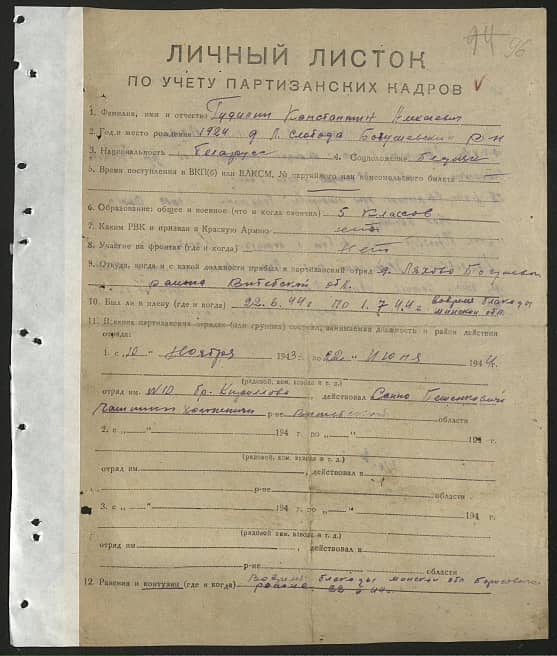 96
ЛИЧНЫЙ ЛИСТОК
ПО УЧЕТУ ПАРТИЗАНСКИХ КАДРОВ
1. Фамилия, имя и отчество Константин
2. Год и место рождения 1924 д. Слобода Богушевский р-н
3. Национальность Беларусс 4. Соцположение
5. Время поступления в ВКП(б) или ВЛКСМ, № партийного или комсомольского билета
6. Образование: общее и военное (что и когда окончил) 5 классов
7. Каким РВК и призван в Красную Армию нет
8. Участие на фронтах (где и когда) Нет
9. Откуда, когда и с какой должности прибыл в партизанский отряд д. Ляхово
района Витебской обл.
10. Был ли в плену (где и когда) 22.6.44г по 1.7.44г вовремя блокады
минской обл.
11. В каких партизанских отрядах (или группах) состоял, занимаемая должность и район действия
отряда:
1. с „10" Ноября 1943 г. по 22 Июня 1944 г.
(рядовой, ком. взвода и т. д.)
отряд им. №10 бр. , действовал Сенно
р-не Витебской области
2. с „ " 194 г. по „ " 194 г.
(рядовой, ком. взвода и т. д.)
отряд им. , действовал в
р-не области
3. с „ " 194 г. по „ " 194 г.
(рядовой, ком. взвода и т. д.)
отряд им , действовал в
р-не области
12. Ранения и контузии (где и когда) Вовремя блокады минской обл.
района 44г.